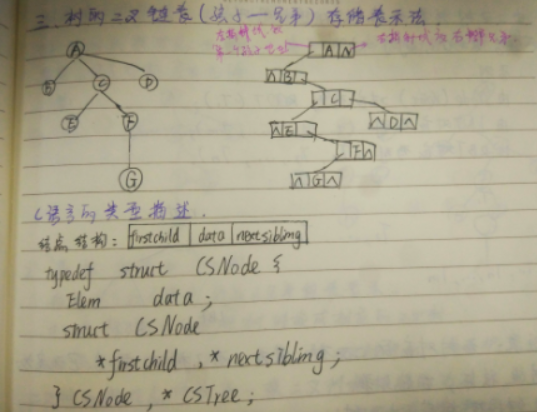 三、树的二叉链表(孩子—兄弟)存储表示法.
左指针域放 右指针域放右邻兄弟.
A
B C D
E F
G
A ∧
∧ B
C
∧ E
∧ D ∧
F ∧
∧ G ∧
C语言的类型描述.
结点结构: firstchild data nextsibling
typedef struct CSNode {
Elem data ;
struct CSNode
*firstchild , * nextsibling ;
} CSNode , * CSTree ;